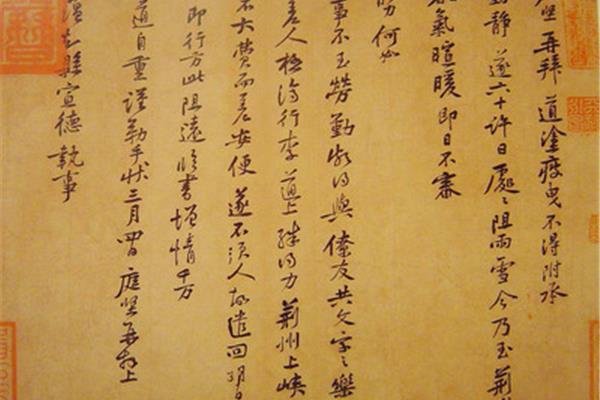 堅再拜 道塗疲曳不得附承
動靜 遂六十許日處〻阻雨雪今乃至荊
氣暄暖 即日不審
力何如
事不至勞勤頗得與僚友共文字之樂
差人極濟行李道上殊得力 荊州上峽
不大費而差安便 遂不須人故遣回明日
即行方此阻遠臨書增情千万
道自重謹勒手狀三月四日 庭堅再拜上
縣宣德 執事